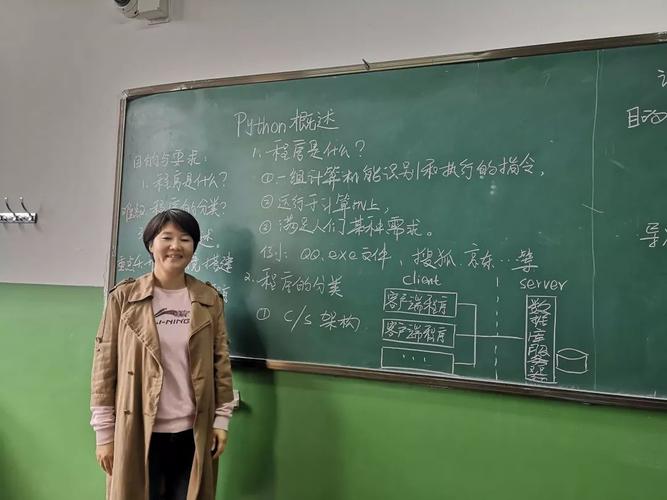 Python概述
目的与要求:
1. 程序是什么?
难点 程序的分类?
述.
重点
搭建
1. 程序是什么?
①一组计算机能识别和执行的指令,
②运行于计算机上,
③满足人们某种需求。
例: QQ.exe文件, 搜狐. 京东...等
2. 程序的分类
① C/S 架构
client
客户端程序
客户端程序
...
server
数据库服务器
目的
导
LI-NING